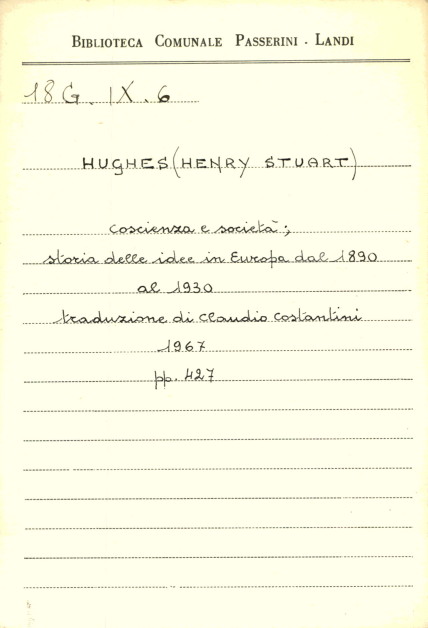 BIBLIOTECA COMUNALE PASSERINI - LANDI
18 G. IX. 6
HUGHES (HENRY STUART)
Coscienza e società;
storia delle idee in Europa dal 1890
al 1930
traduzione di Claudio Costantini
1967
pp. 427